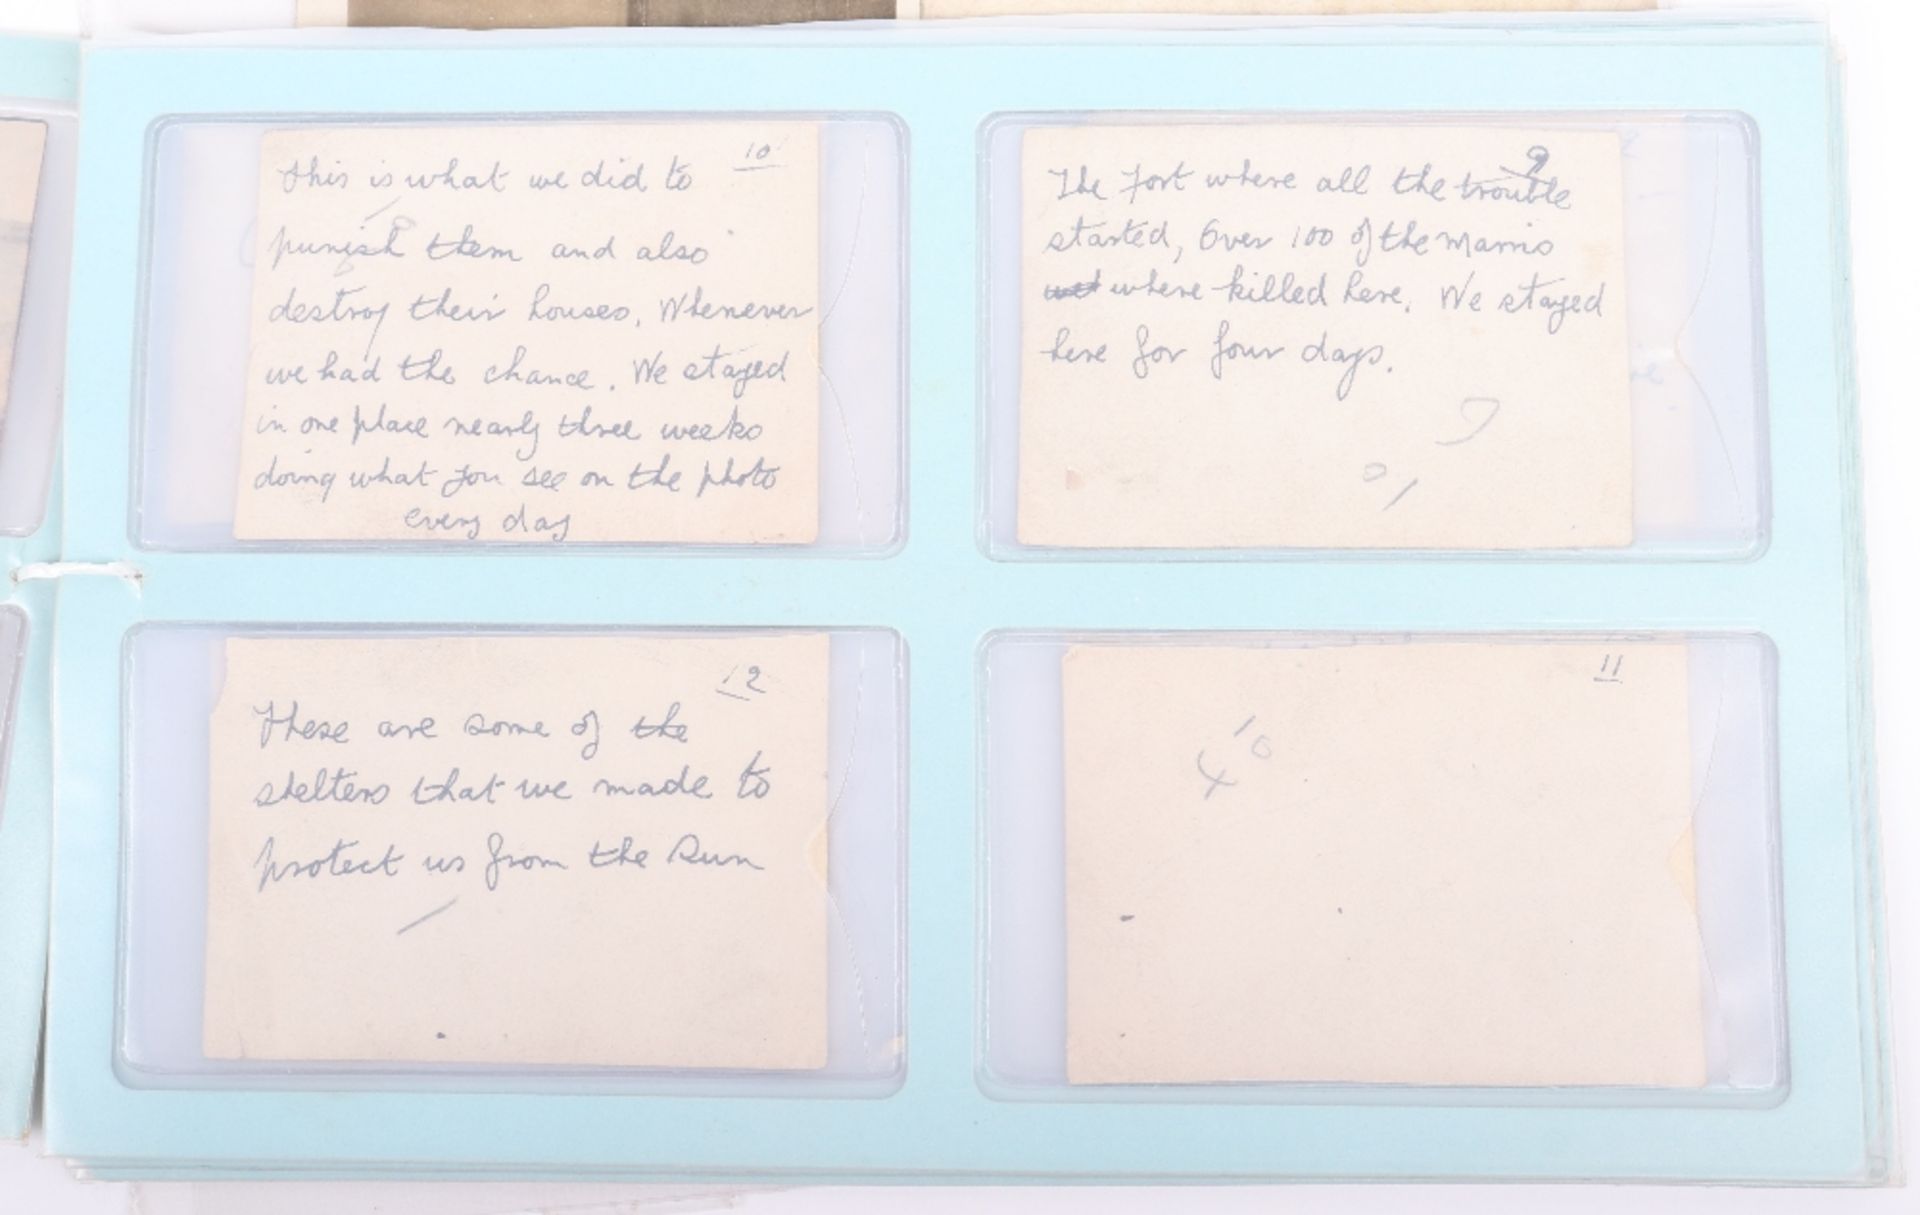 10
This is what we did to
punish them and also
destroy their houses. Whenever
we had the chance. We stayed
in one place nearly three weeks
doing what you see on the photo
every day
9
The Fort where all the trouble
started, Over 100 of the Marris
where killed here. We stayed
here for four days.
12
These are some of the
shelters that we made to
protect us from the Sun
11